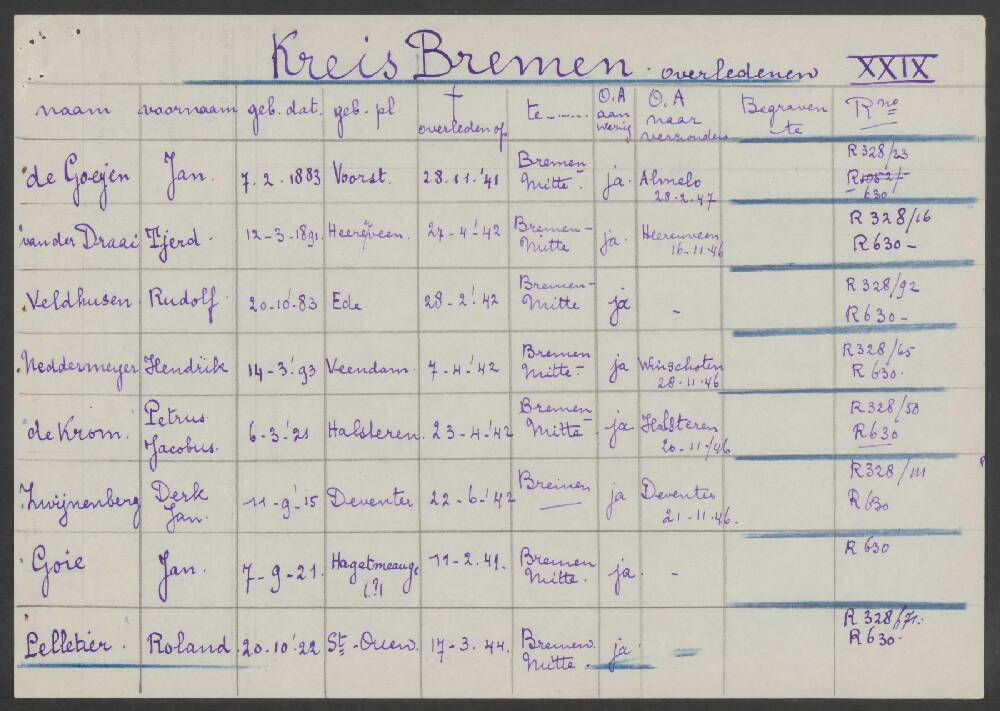 Kreis Bremen. overledenen XXIX
naam voornaam geb. dat. geb. pl † overleden op te ....... O.A aan wezig O.A naar verzonden Begraven te R no
de Goejen Jan. 7. 2. 1883 Voorst. 28.11.'41 Bremen-Mitte. ja. Almelo 28.2.47 R 328/23 630
van der Draai Tjerd. 12-3-1891. Heerenveen. 27-4-'42 Bremen-Mitte ja. Heerenveen 16-11-46 R 328/16 R630-
Veldhusen Rudolf. 20-10'-83 Ede 28-2-'42 Bremen-Mitte ja - R 328/92 R630-
Neddermeyer Hendrik 14-3-'93 Veendam. 7-4-'42 Bremen Mitte- ja Winschoten 28-11-46 R328/65 R 630.
de Krom. Petrus Jacobus. 6-3-'21 Halsteren. 23-4-'42 Bremen-Mitte. ja. Halsteren 20-11-'46 R328/50 R630
Zwijnenberg Derk Jan. 11-9-'15 Deventer 22-6-'42 Bremen ja Deventer 21-11-46. R328/111 R630
Goie Jan. 7-9-21. Hagetmeauge (?) 11-2.41. Bremen Mitte. ja. - R 630
Pelletier. Roland 20-10'22 St-Ouen. 17-3.44. Bremen. Mitte. ja. - R 328/71. R630-